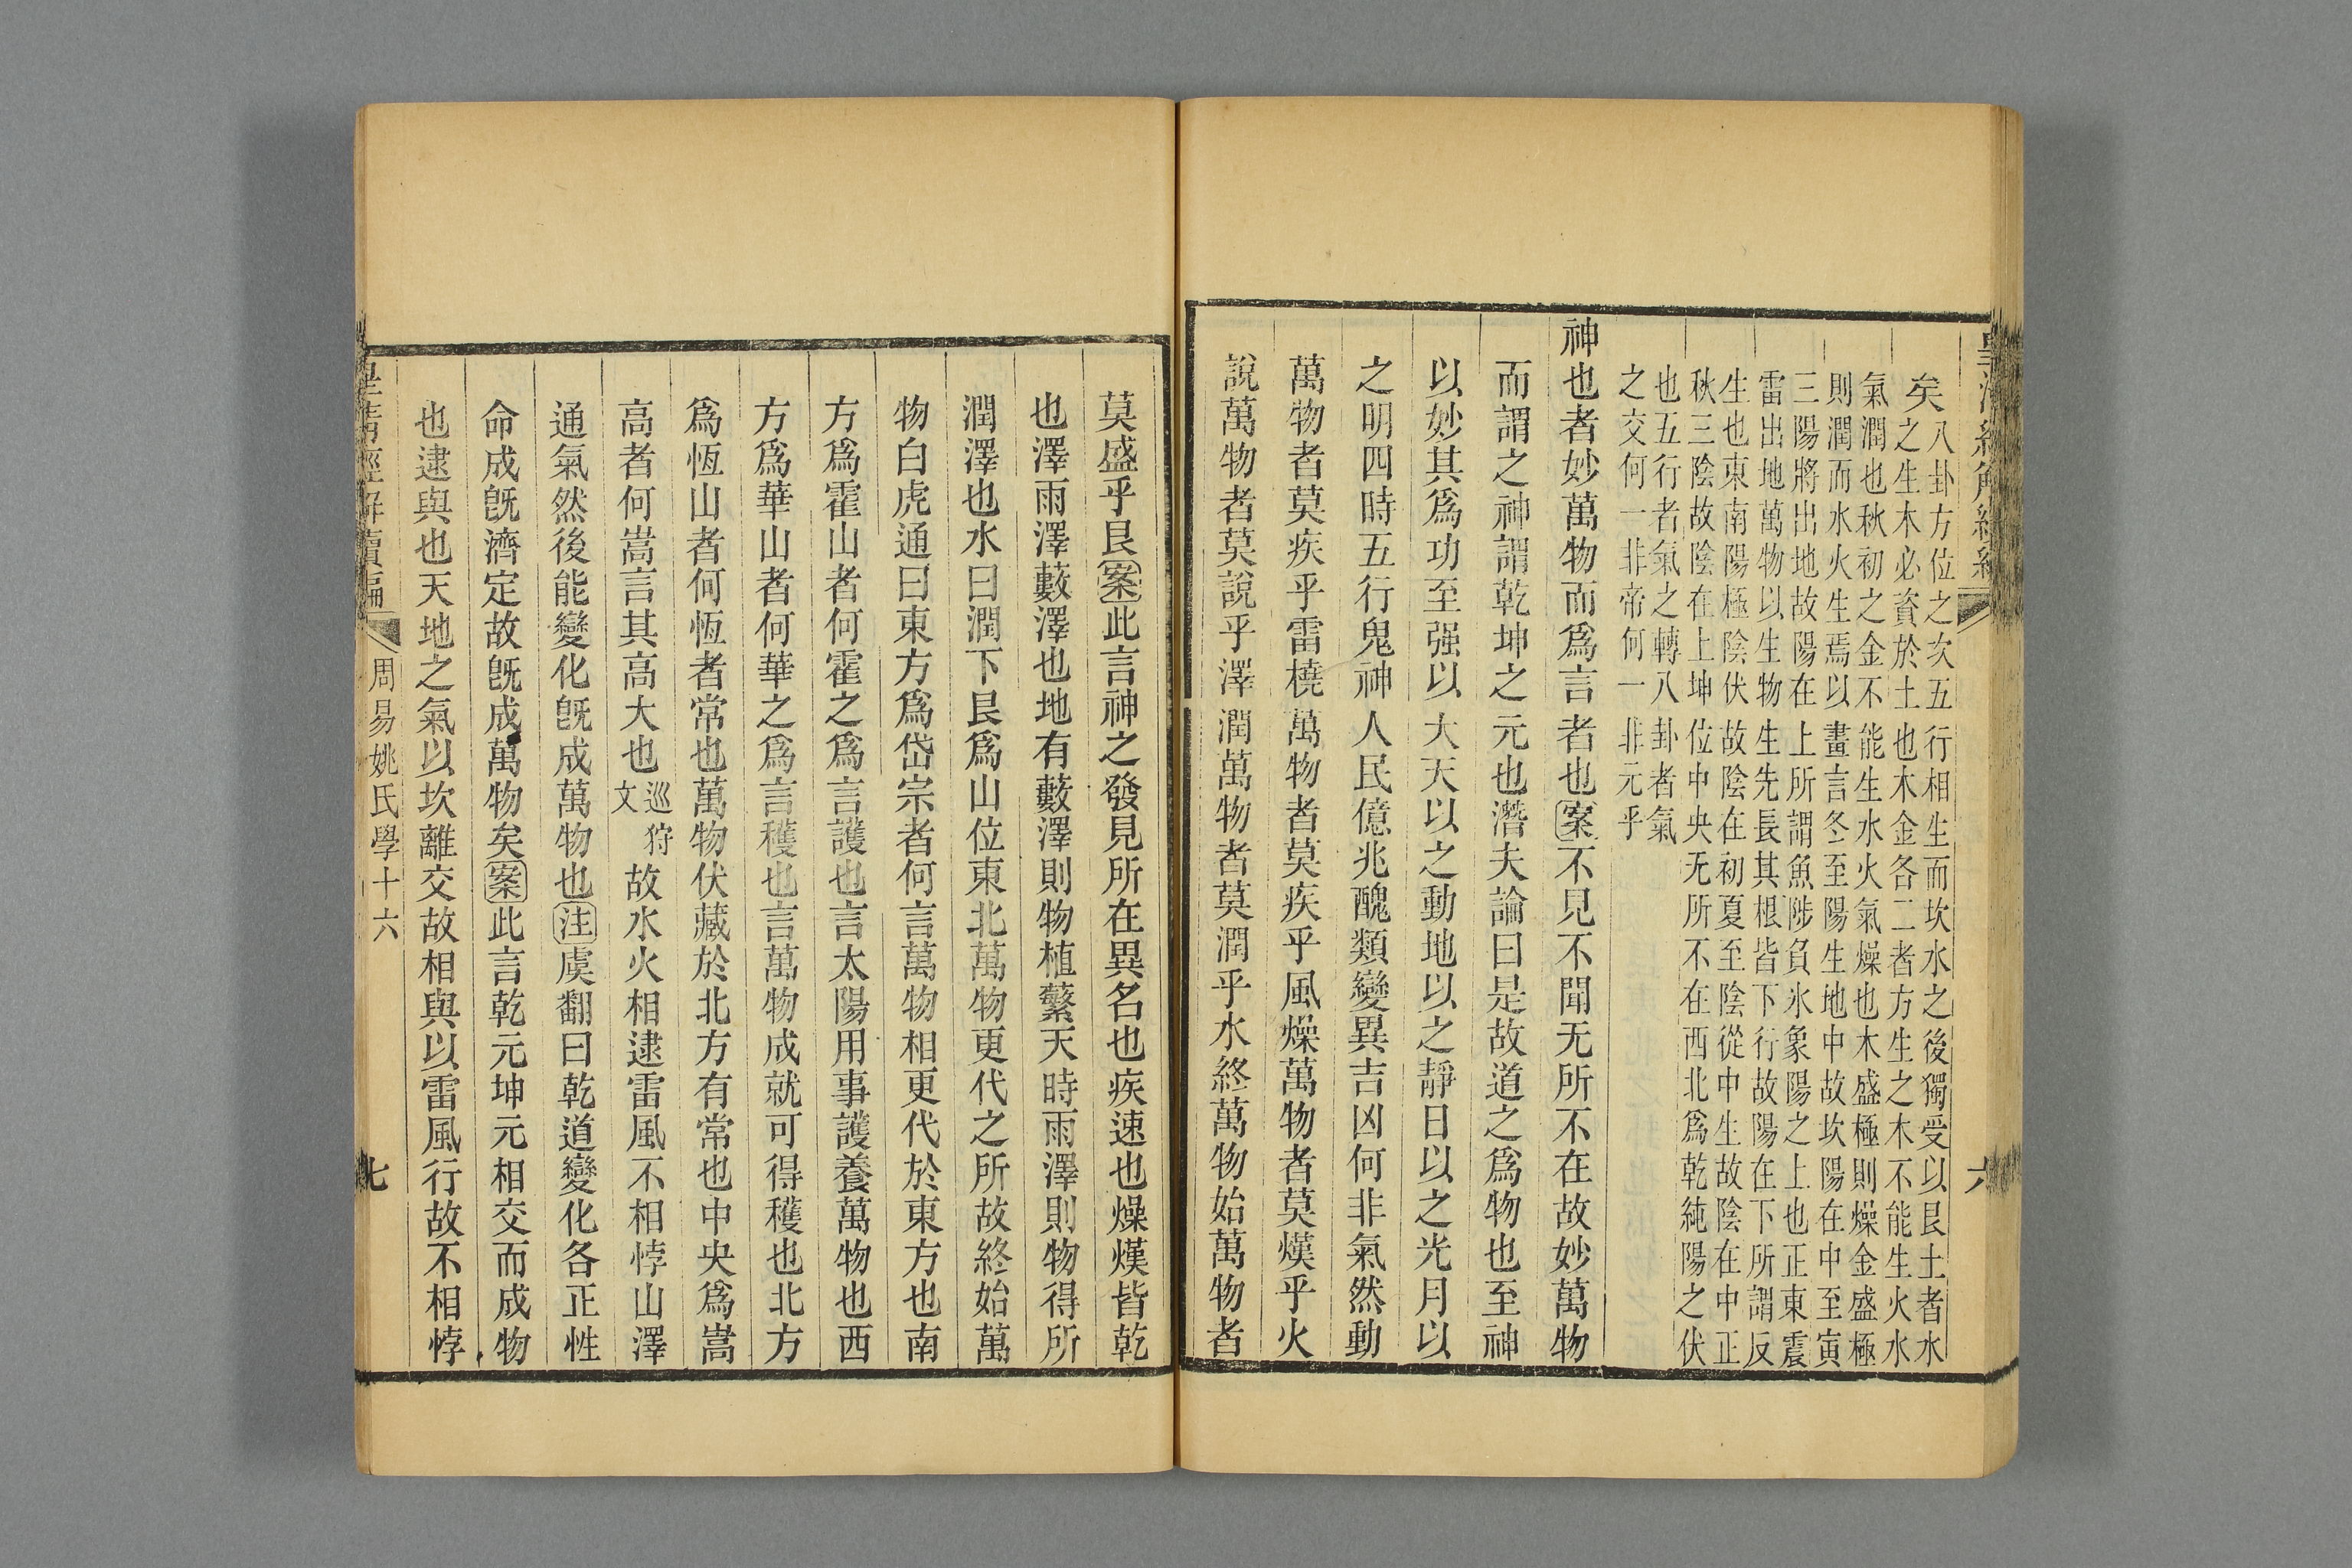 皇清經解續編
六
矣
八卦方位之次五行相生而坎水之後獨受以艮土者水
之生木必資於土也木金各二者方生之木不能生火水
氣潤也秋初之金不能生水火氣燥也木盛極則燥金盛極
則潤而水火生焉以畫言冬至陽生地中故坎陽在中至寅
三陽將出地故陽在上所謂魚陟負氷象陽之上也正東震
雷出地萬物以生物生先長其根皆下行故陽在下所謂反
生也東南陽極陰伏故陰在初夏至陰從中生故陰在中正
秋三陰故陰在上坤位中央无所不在西北爲乾純陽之伏
也五行者氣之轉八卦者氣
之交何一非帝何一非元乎
神也者妙萬物而爲言者也案不見不聞无所不在故妙萬物
而謂之神謂乾坤之元也潛夫論曰是故道之爲物也至神
以妙其爲功至强以大天以之動地以之靜日以之光月以
之明四時五行鬼神人民億兆醜類變異吉凶何非氣然動
萬物者莫疾乎雷橈萬物者莫疾乎風燥萬物者莫熯乎火
說萬物者莫說乎澤潤萬物者莫潤乎水終萬物始萬物者
莫盛乎艮案此言神之發見所在異名也疾速也燥熯皆乾
也澤雨澤藪澤也地有藪澤則物植蘩天時雨澤則物得所
潤澤也水曰潤下艮爲山位東北萬物更代之所故終始萬
物白虎通曰東方爲岱宗者何言萬物相更代於東方也南
方爲霍山者何霍之爲言護也言太陽用事護養萬物也西
方爲華山者何華之爲言穫也言萬物成就可得穫也北方
爲恆山者何恆者常也萬物伏藏於北方有常也中央爲嵩
高者何嵩言其高大也巡狩文故水火相逮雷風不相悖山澤
通氣然後能變化旣成萬物也注虞翻曰乾道變化各正性
命成旣濟定故旣成萬物矣案此言乾元坤元相交而成物
也逮與也天地之氣以坎離交故相與以雷風行故不相悖
皇清經解續編
周易姚氏學十六
七